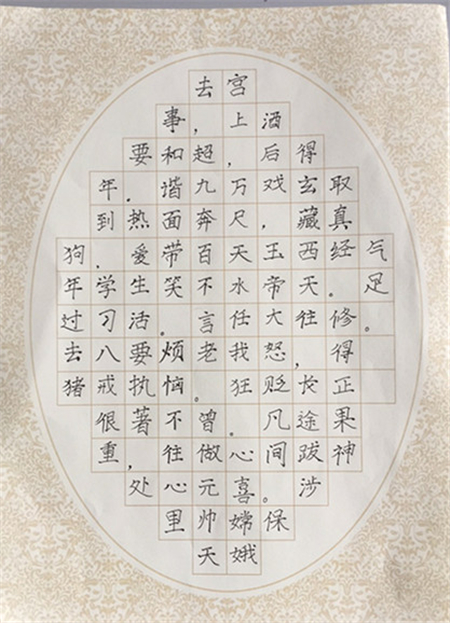 狗年过去猪
年到，学习八戒很重
要。热爱生活要执著，处
事和谐面带笑。烦恼不往心里
去，超九奔百不言老。曾做元帅天
宫上，万尺天水任我狂。心喜嫦娥
酒后戏，玉帝大怒贬凡间。保
得玄藏西天往，长途跋涉
取真经。修得正果神
气足。